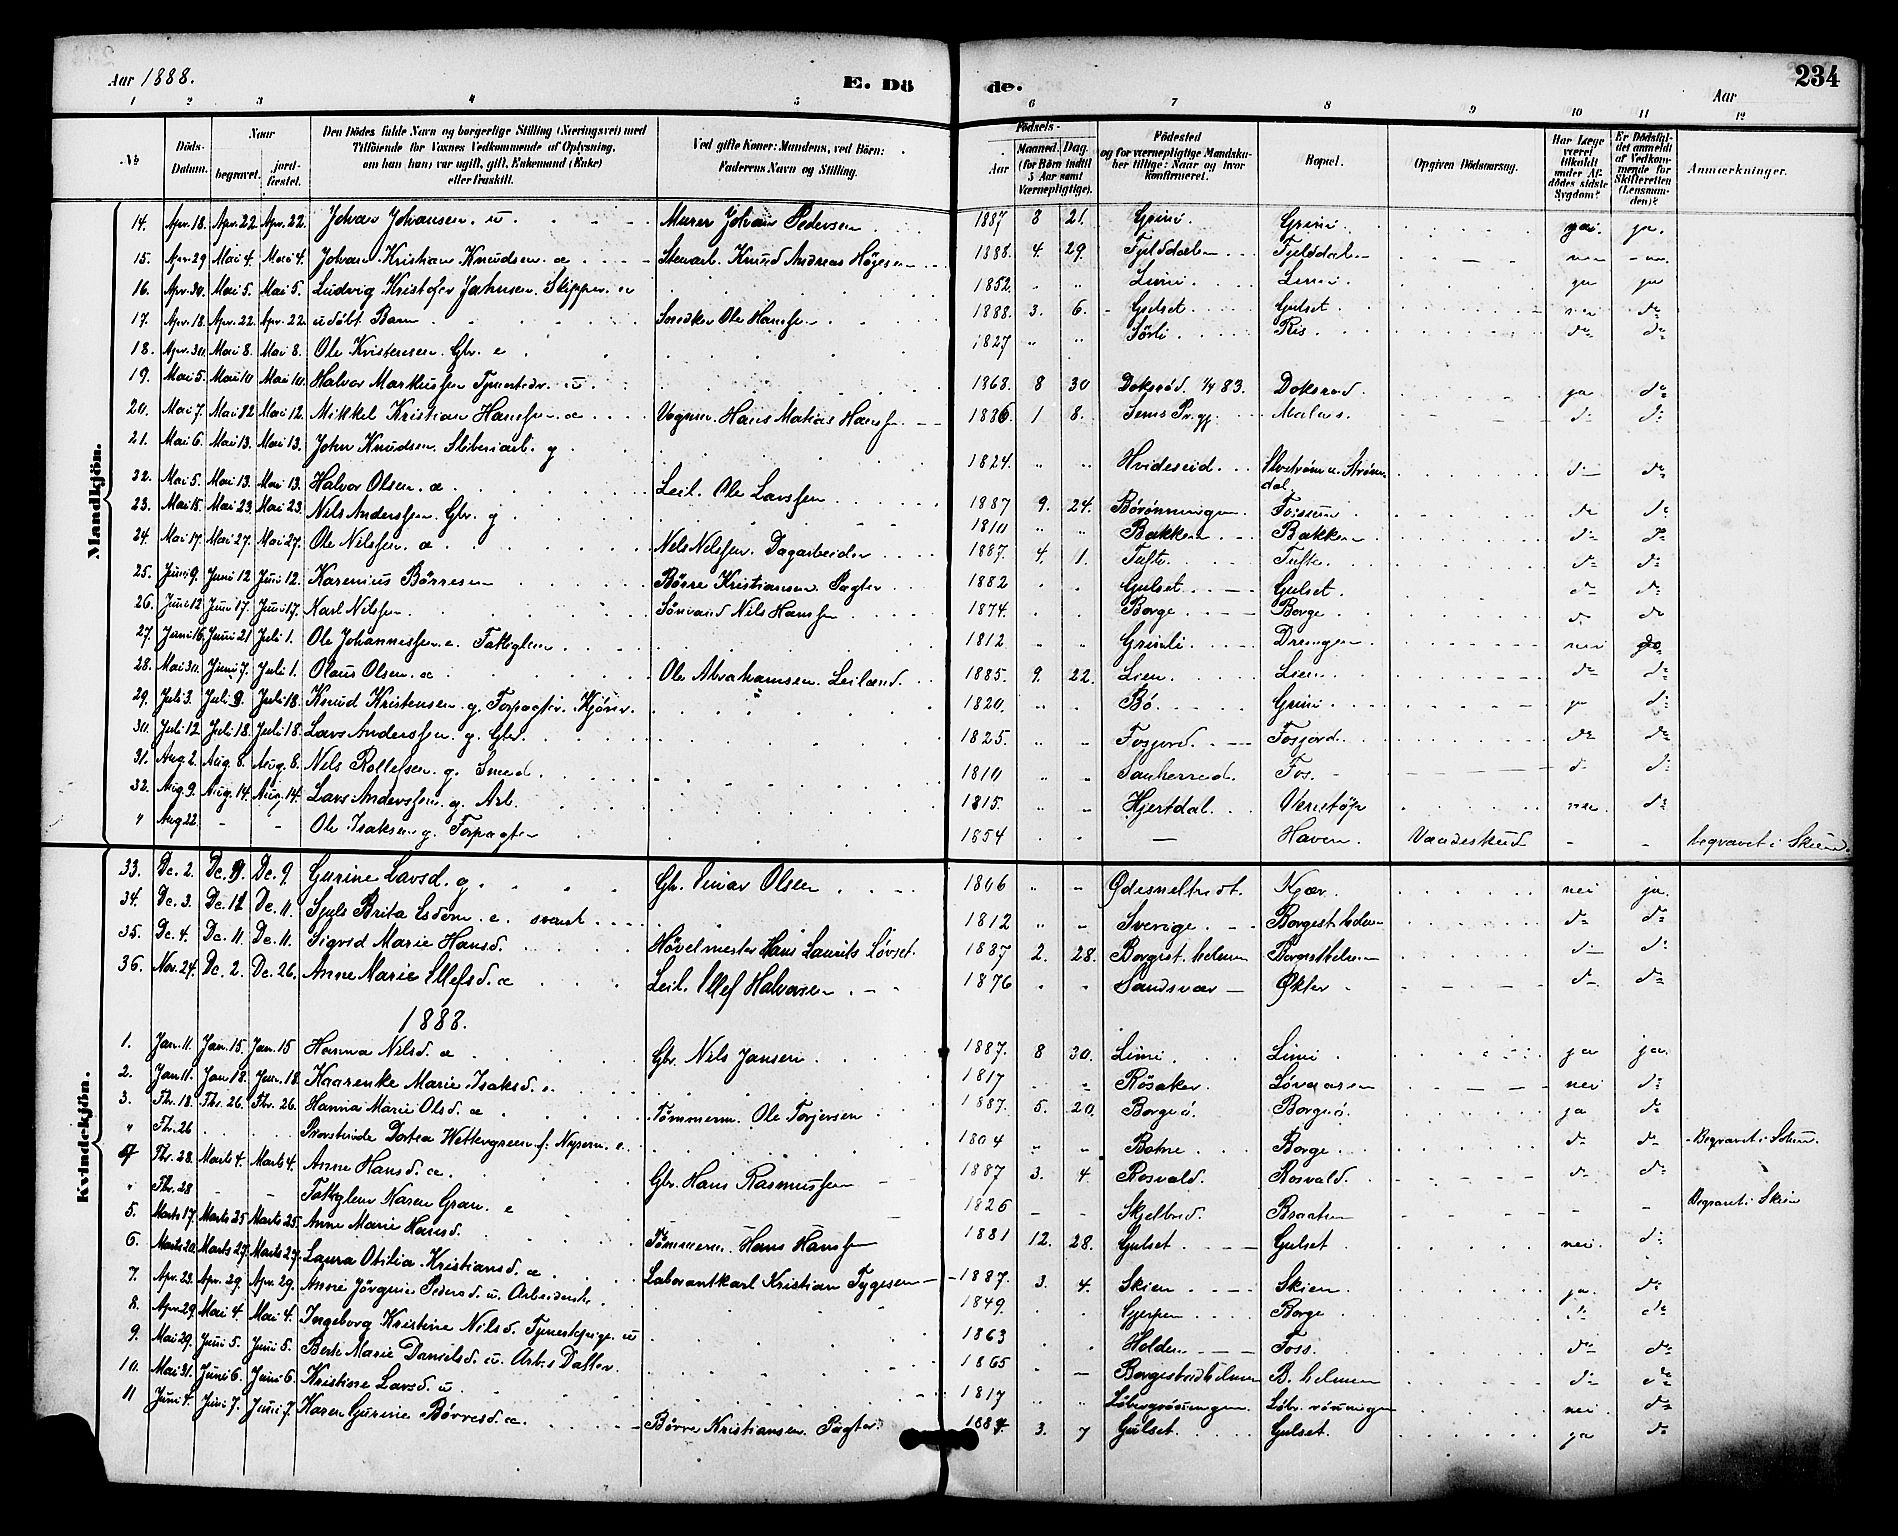 Aar 1888. E. Dö de. Aar 234
1 2 3 4 5 6 7 8 9 10 11 12
№ Döds-Datum. Naar begravet. jordfæstet. Den Dödes fulde Navn og borgerlige Stilling (Næringsvei) med Tilföiende for Voxnes Vedkommende af Oplysning, om han (hun) var ugift, gift, Enkemand (Enke) eller fraskilt. Ved gifte Koner: Mandens, ved Börn: Faderens Navn og Stilling. Födsels- Aar Maaned. Dag. (for Börn indtil 5 Aar samt Værnepligtige). Födested og for værnepligtige Mandskaber tillige: Naar og hvor Konfirmeret. Bopæl. Opgiven Dödsaarsag. Har Læge været tilkaldt under Afdödes sidste Sygdom? Er Dödsfaldet anmeldt af Vedkommende for Skifteretten (Lensmanden)? Anmærkninger.
Mandkjön.
14. Apr. 18. Apr. 22 Apr. 22. Johan Johansen. u Murer Johan Pedersen 1887 8 21. Grini Grini ja. ja.
15. Apr. 29 Mai 4. Mai 4. Johan Kristian Knudsen. æ Stenarb. Knud Andreas Höjesen 1888. 4. 29. Fjelddalen Fjelddalen nei
16. Apr. 30. Mai 5. Mai 5. Ludvig Kristofer Jahnsen. Skipper. u 1852. " " Limi Limi ja ja
17. Apr. 18. Apr. 22. Apr. 22. udöbt Barn Snedker Ole Hansen 1888. 3. 6. Gulset Gulset nei do
18. Apr. 30. Mai 8. Mai 8. Ole Kristensen. Gbr. e 1827 " " Sörli Ris do do
19. Mai 5. Mai 10 Mai 10. Halvor Markussen Tjenestedr. u 1868. 8 30 Doksrød. 83. Doksrød ja do
20. Mai 7. Mai 12 Mai 12. Mikkel Kristian Hansen. æ Vognm. Hans Matias Hansen 1886 1 8. do do
21. Mai 6. Mai 13. Mai 13. John Knudsen. Sliberiarb. g 1824. " " Hvideseid do do
22. Mai 5. Mai 13. Mai 13. Halvor Olsen. æ Leil. Ole Larssen 1887 9. 24. Börönningen Fossum do do
23. Mai 15. Mai 23. Mai 23. Nils Anderssen. Gbr. g 1810 " " Bakken Bakken do do
24. Mai 17. Mai 27. Mai 27. Ole Nilssen. æ Nels Nelssen. Dagarbeider 1887. 4. 1. Tufte Tufte do do
25. Juni 9. Juni 12 Juni 12. Karenius Börresen Börre Kristiansen. Pagter 1882 Gulset Gulset do do
26. Juni 12 Juni 17. Juni 17. Karl Nilssen Sömand Nils Hanssen 1874. Borge Borge do do
27. Juni 16. Juni 21 Juli 1. Ole Johannessen. e. Fattiglem 1812 Grinli nei do
28. Mai 30. Juni 7. Juli 1. Olaus Olsen. æ Ole Abrahamsen. Leilænd. 1885. 9. 22. Lien Lien do do
29. Juli 3. Juli 9. Juli 18. Knud Kristensen. g. Forpagter. Kjörer. 1820. Bö Grini ja do
30. Juli 12 Juli 18. Juli 18. Lars Anderssen. g. Gbr. 1825. " " Fosjord Fosjord do do
31. Aug. 2. Aug. 8. Aug. 8. Nils Rollefsen. g. Smed 1810 " " Sauherred. Fos. do do
32. Aug. 9. Aug. 14. Aug. 14. Lars Anderssen. g. Arb. 1815. " " Hjertdal Venstöp nei do
" Aug 22 - - Ole Isaksen g. Forpagter 1854 — Haven Vaadeskud - - begravet i Skien.
Kvindekjön.
33. De. 2. De. 9. De. 9 Gurine Larsd. g. Gbr. Einar Olsen 1806 " " Kjær nei ja
34. De. 3. De. 11 De. 11. e. svensk 1812 " " Sverige Borgest. holmen do do
35. De. 4. De. 11. De. 11. Sigrid Marie Hansd. Hövelmester Hans Laurits Lövset. 1887 2. 28. Borgest. holmen Borgestholmen do do
36. Nov. 24. De. 2. De. 26. Anne Marie Ellefsd. æ Leil. Ellef Halvorsen 1876 Sandsvær Økter do do
1888.
1. Jan. 11. Jan. 15. Jan. 15 Hanna Nilsd. æ Gbr. Nils Jansen 1887. 8 30. Limi Limi ja ja.
2. Jan 11. Jan 18. Jan. 18. Kaarenke Marie Isaksd. e. 1817 Rösaker Løvaasen nei do
3. Fbr. 18. Fbr. 26. Fbr. 26. Hanna Marie Olsd. æ Tömmerm. Ole Torjersen 1887. 5. 20. Borgeö. Borgeö. ja do
" Fbr. 26 Dortea Wettergreen f. Nysom. e. 1804 " " Botne Borge do do Begravet i Skien.
4 Fbr. 28. Marts 4. Marts 4. Anne Hansd. æ Gbr. Hans Rasmussen 1887 3. 4. Rosvald. Rosvald. do do
" Fbr. 28 - - Fattiglem Karen Gran. e 1826 - - Skjelbred. Braaten - - Begravet i Skien
5. Marts 17. Marts 25 Marts 25. Anne Marie Hansd. Tömmerm. Hans Hanssen 1881 12. 28. Gulset Gulset nei. do
6. Marts 20. Marts 27. Marts 27. Laura Otilia Kristiansd. æ Laborantkarl Kristian Tygesen 1887. 3. 4. Skien Skien ja. do
7. Apr. 23. Apr. 29. Apr. 29. Anne Jörgine Pedersd. u. Arbeiderske 1849. Gjerpen Borge do do
8. Apr. 29. Mai 4 Mai 4. Ingeborg Kristine Nilsd. Tjenestepige. u 1863 Holden Foss do do
9. Mai 29. Juni 5. Juni 5. Berte Marie Danielsd. u. Arbs. Datter. 1865 Borgestadholmen B. holmen do do
10. Mai 31. Juni 6. Juni 6. Kristine Larsd. u 1817 " " nei do
11 Juni 4. Juni 7. Juni 7. Karen Gurine Börresd. æ Börre Kristiansen. Pagter. 1887. 3. 7 Gulset Gulset. ja do